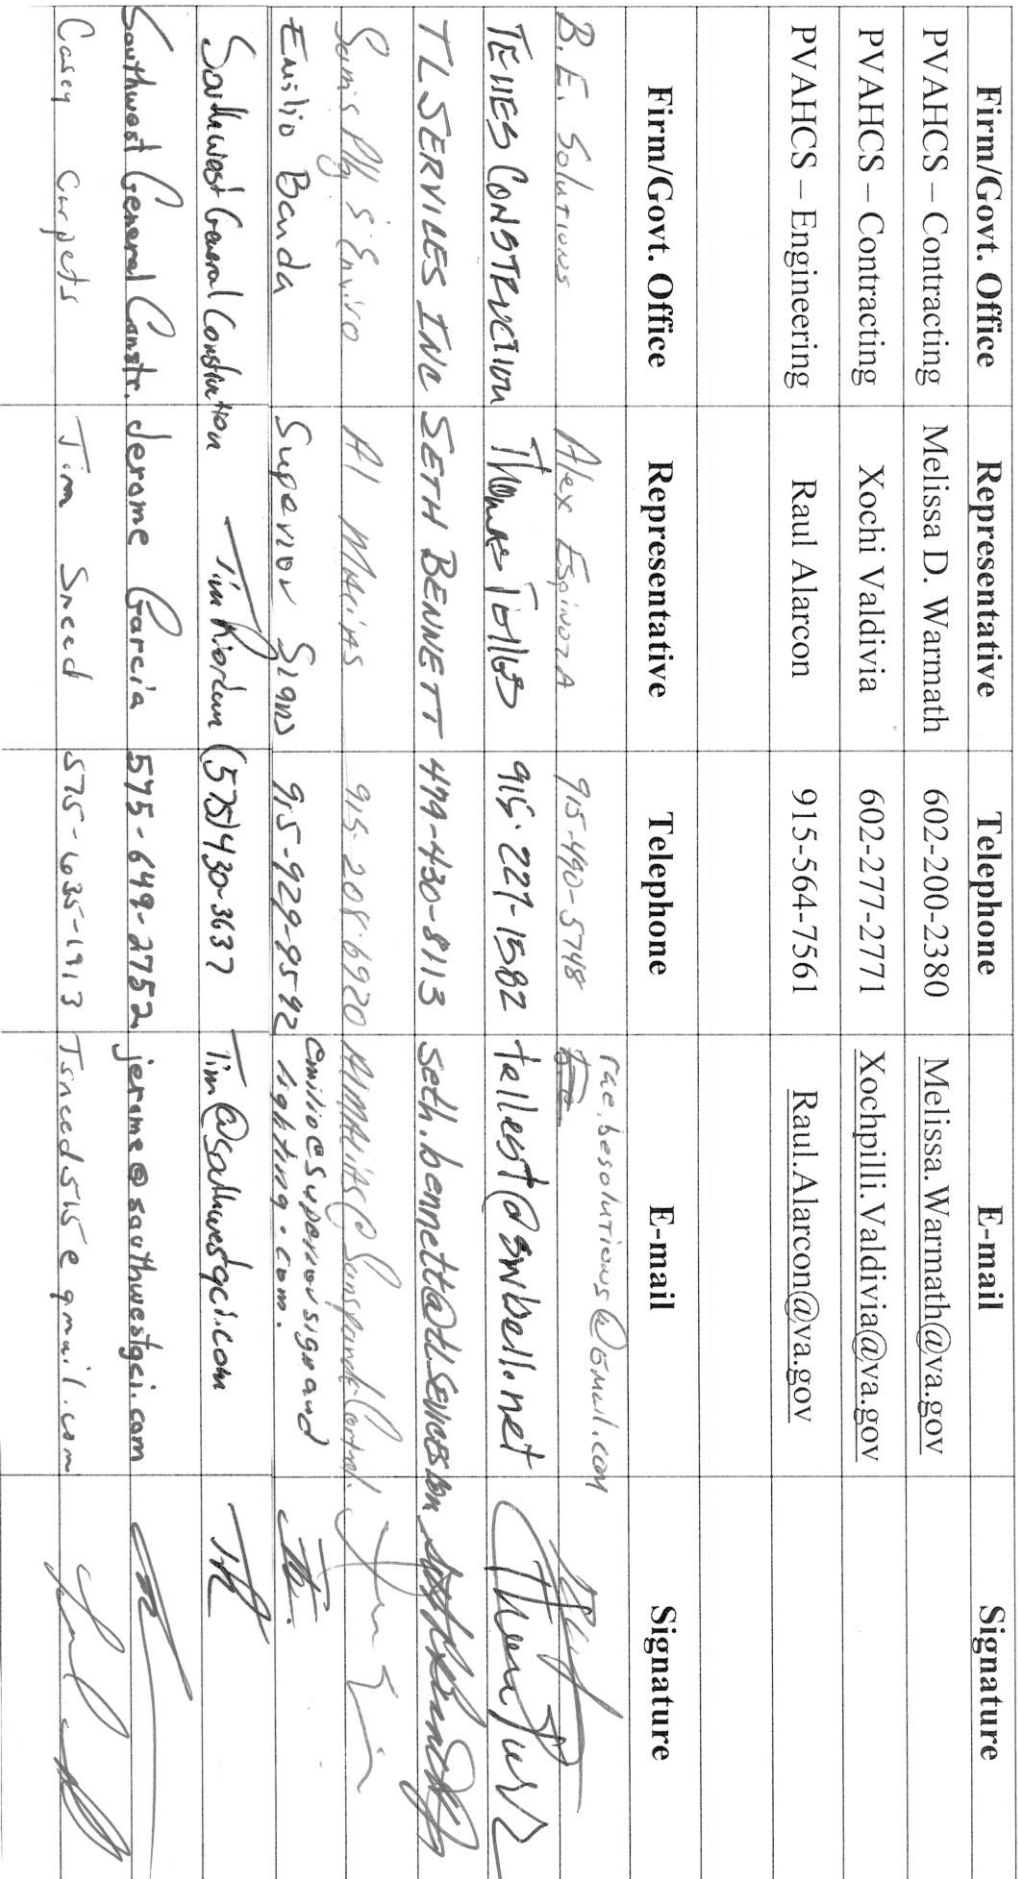 Firm/Govt. Office Representative Telephone E-mail Signature
PVAHCS – Contracting Melissa D. Warmath 602-200-2380 Melissa.Warmath@va.gov
PVAHCS – Contracting Xochi Valdivia 602-277-2771 Xochpilli.Valdivia@va.gov
PVAHCS – Engineering Raul Alarcon 915-564-7561 Raul.Alarcon@va.gov
Firm/Govt. Office Representative Telephone E-mail Signature
B.E. Solutions Alex Espinoza 915-490-5748 rae.besolutions@gmail.com
CONSTRUCTION Thomas 915-227-1582 tallest@swbell.net
TL SERVICES INC SETH BENNETT 479-430-8113 seth.bennett@tlservices.com
Al Macias 915-208-6920
Emilio Banda Superior Signs 915-929-9592 emilio@superiorsignand
lighting.com.
Southwest General Construction Tim Riordan (575)430-3637 Tim@southwestgci.com TR
Southwest General Constr. Jerome Garcia 575-649-2752 jerome@southwestgci.com
Casey Carpets Tim Sneed 575-635-1913 Tsneed515@gmail.com